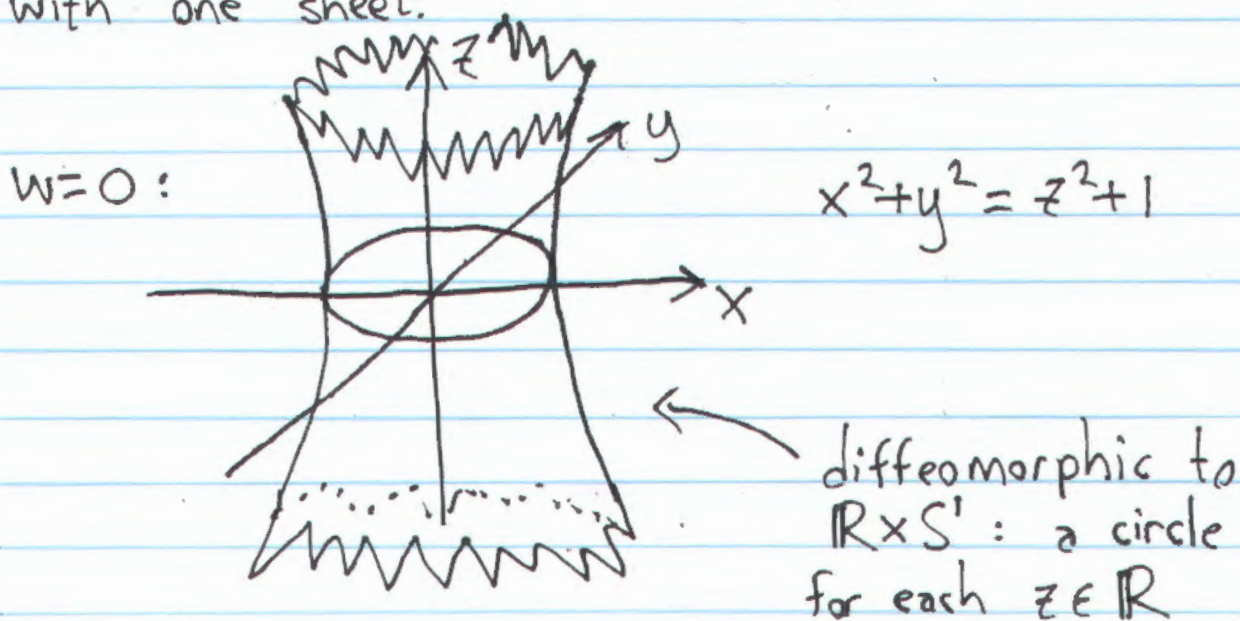 with one sheet.
z
y
w=0:
x²+y² = z²+1
x
diffeomorphic to
ℝxS¹ : a circle
for each z∈ℝ